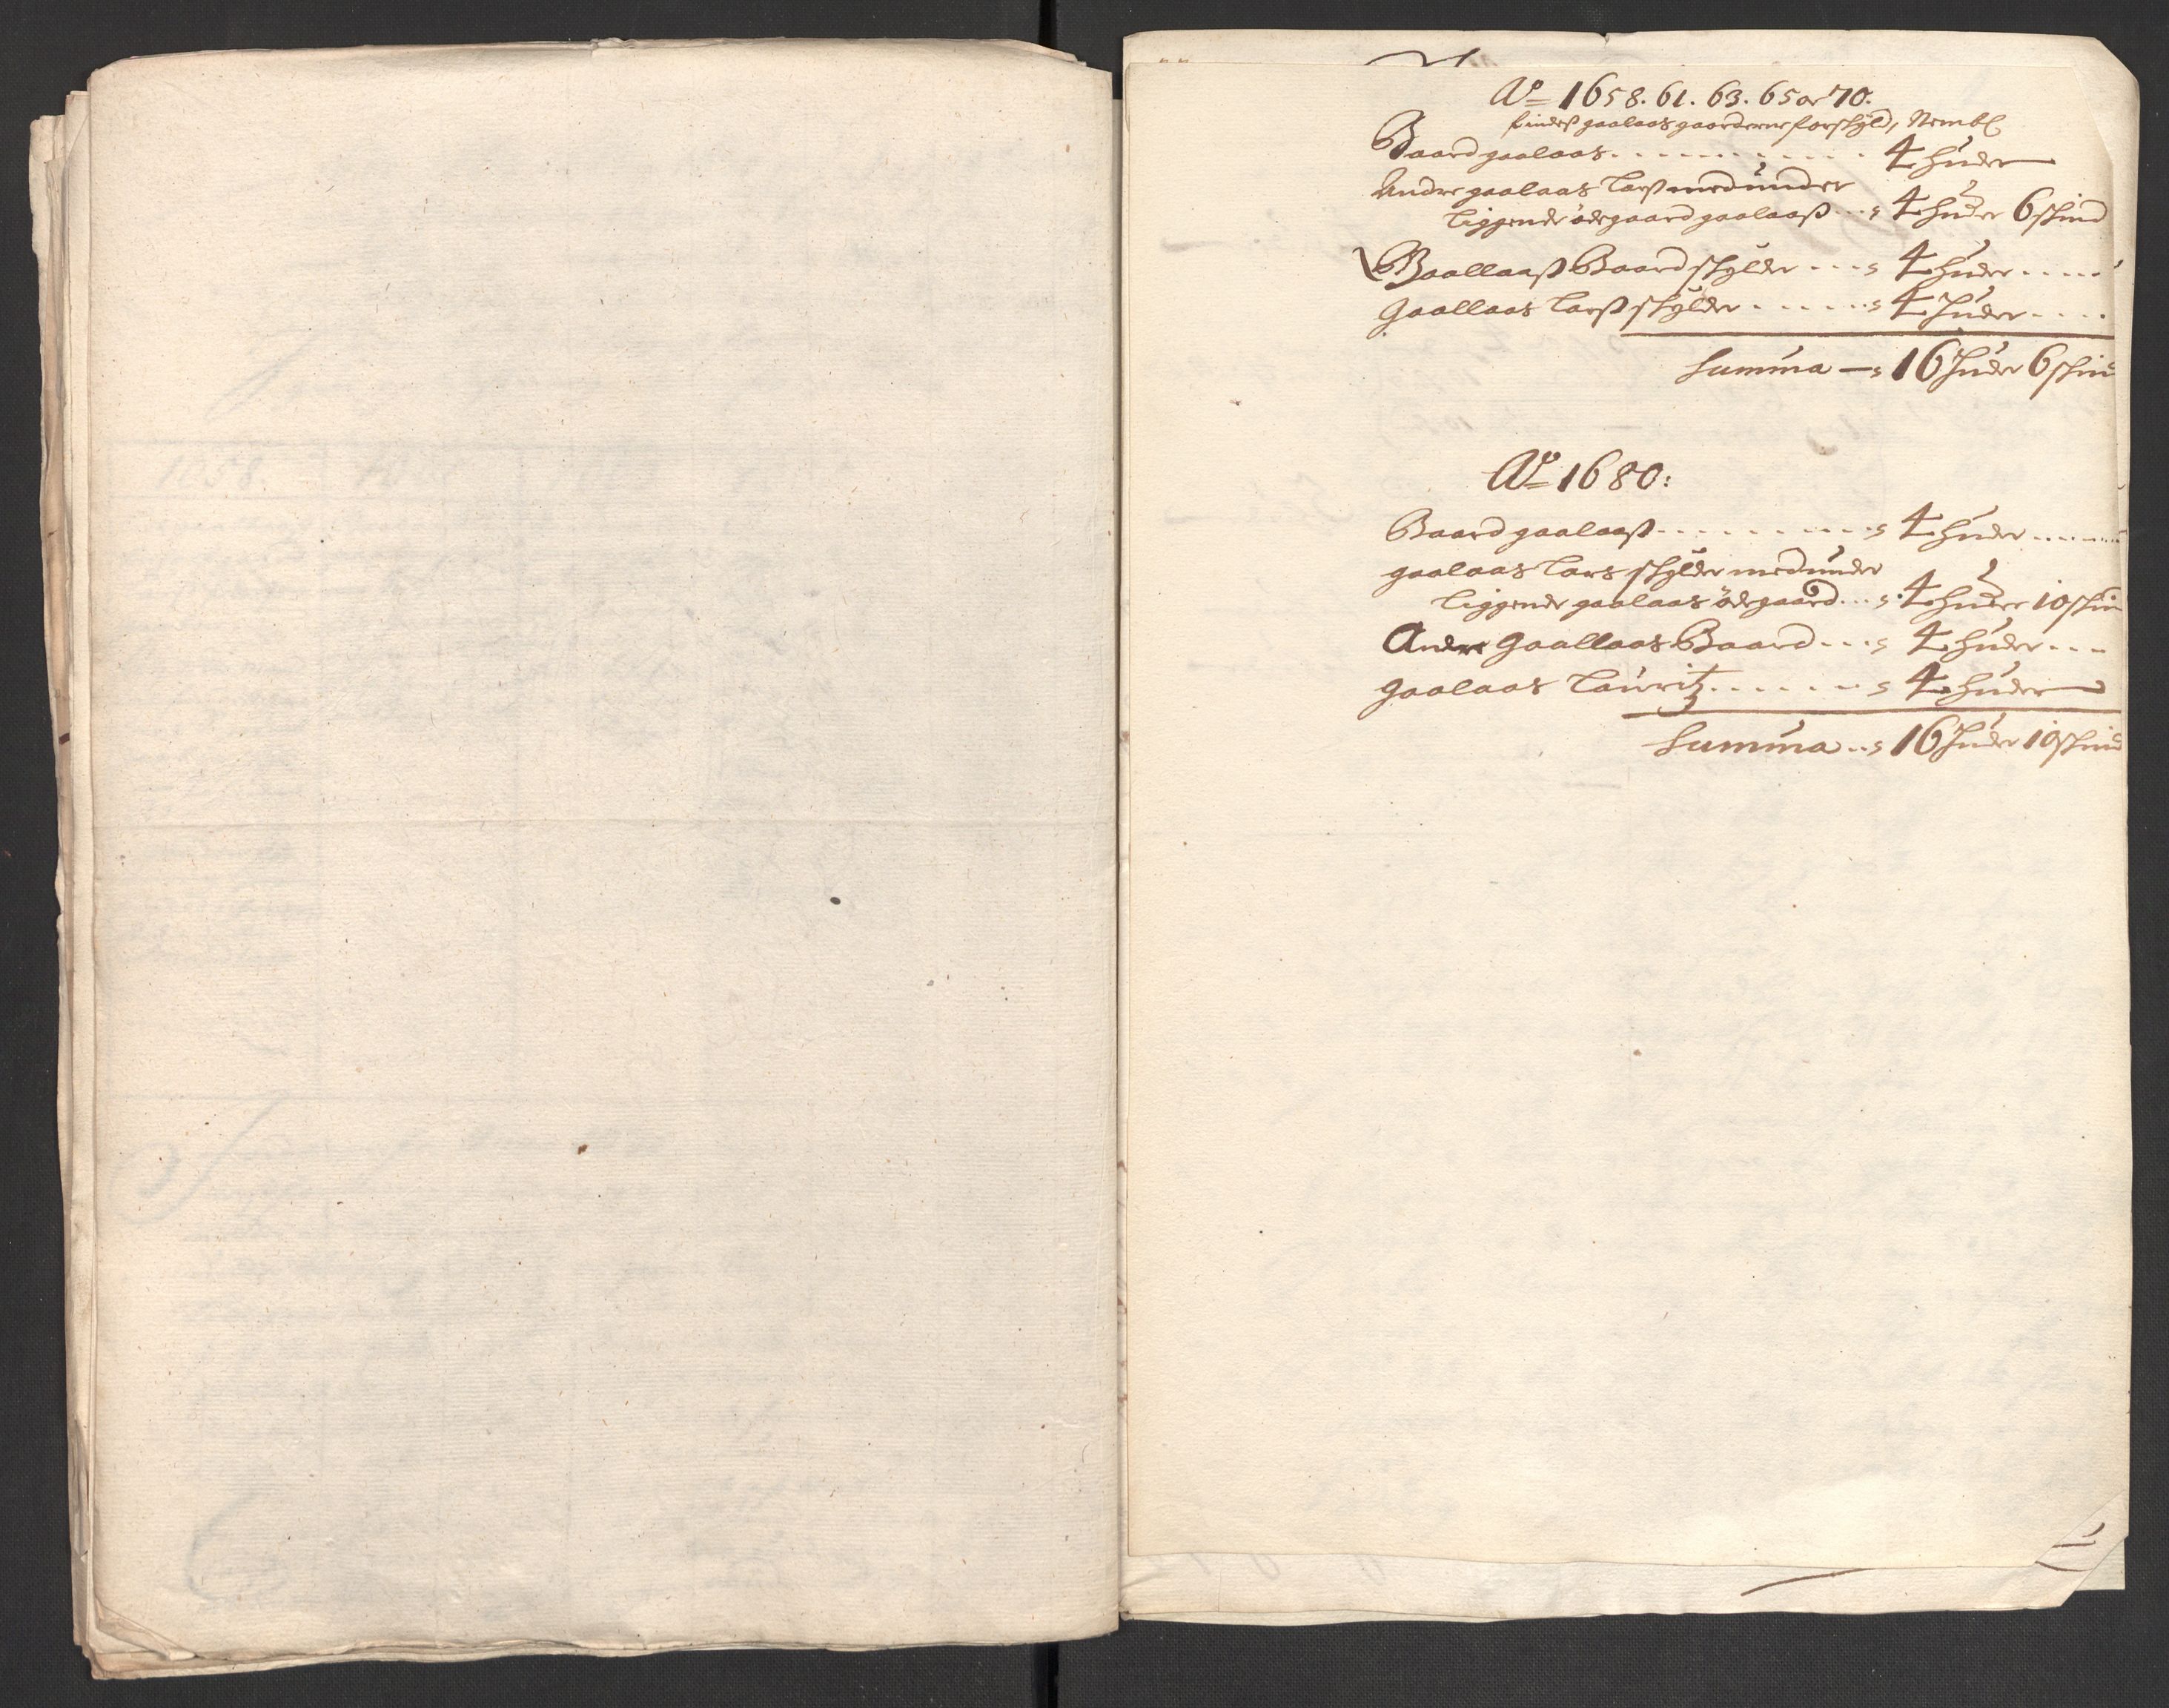 Ao 1658. 61. 63. 65 or 70.
findes gaalaas gaarderne for skyld, Nembl
Baard gaalaas . . . . . . . . . . . . 4 huder
Andre gaalaas Larss med under
liggende ødegaard gaalaass . . . 4 huder 6 skind
Gaallaass Baard skylder . . . 4 huder . . . . .
Gaallaas Larss skylder . . . . . . 4 huder . . . .
Summa — 16 huder 6 skind
Ao 1680:
Baard gaalaass . . . . . . . . . . 4 huder . . . . . .
gaalaas Lars skylder med under
liggende gaalaas ødegaard . . . 4 huder 10 skin
Andre Gaallaas Baard . . . 4 huder . . .
Gaalaas Lauritz . . . . . . . 4 huder
Summa . . 16 huder 10 skind
1658